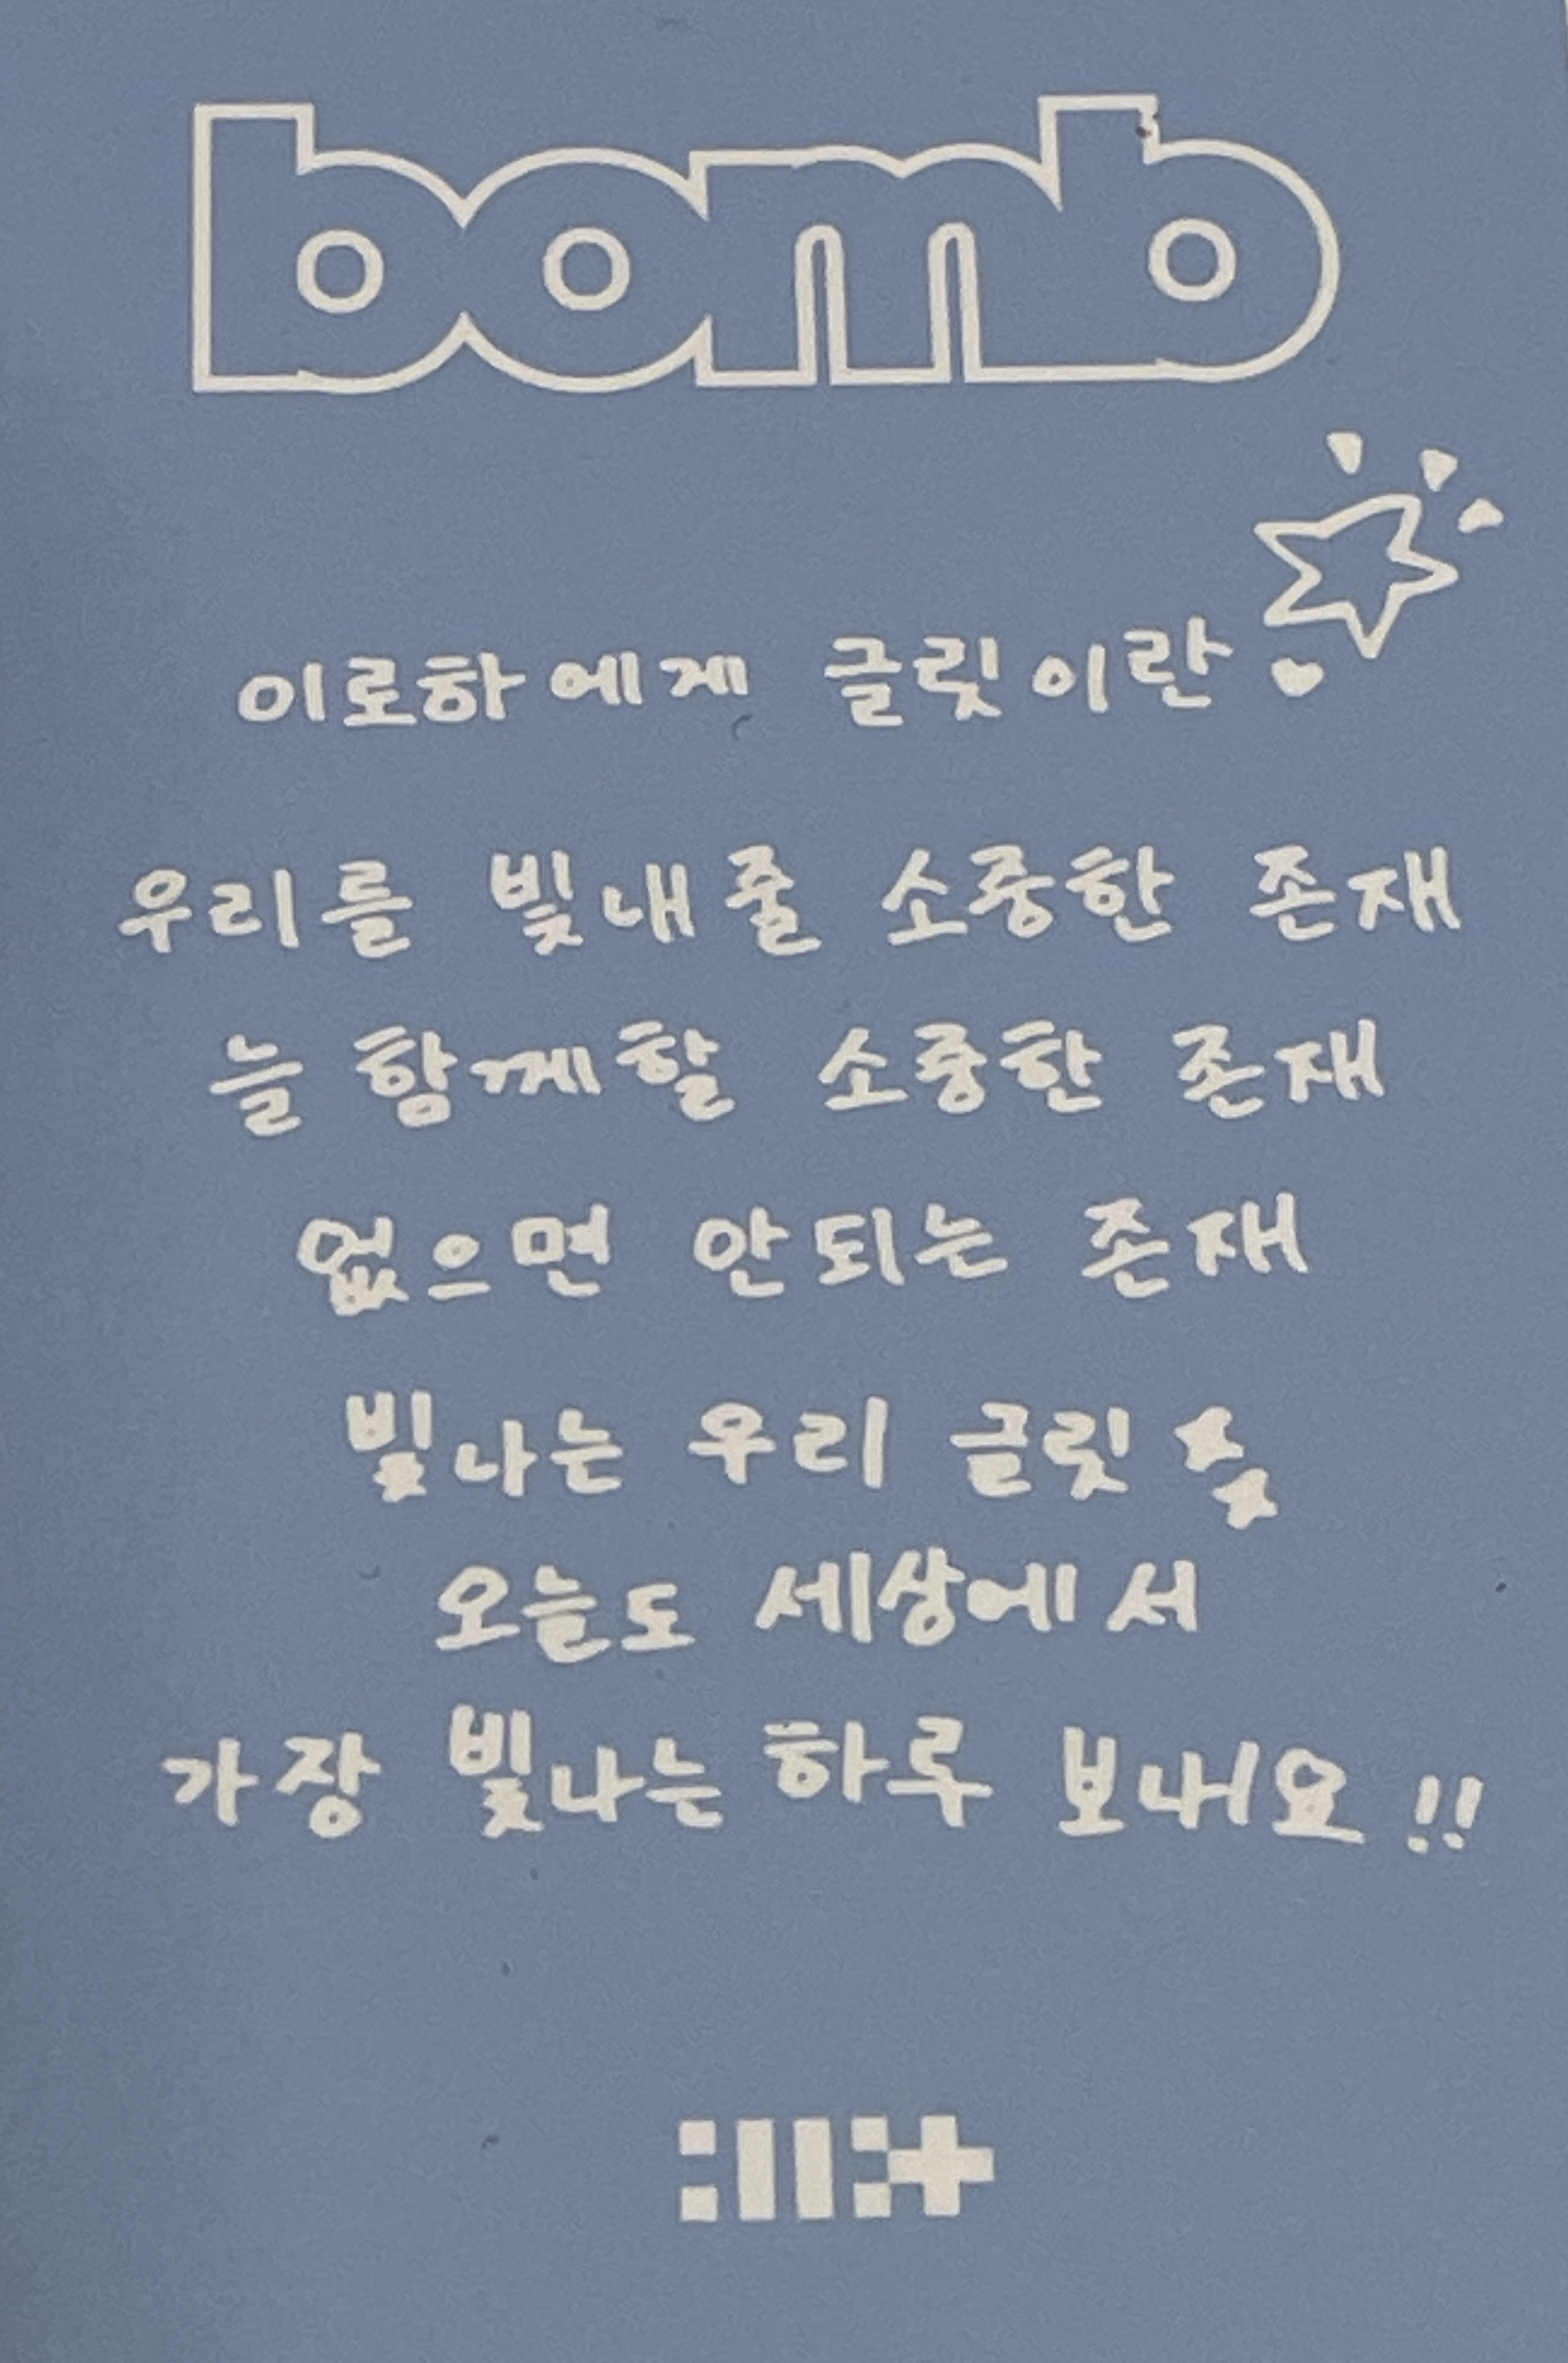 bomb
이로하에게 글릿이란
우리를 빛내줄 소중한 존재
늘 함께할 소중한 존재
없으면 안되는 존재
빛나는 우리 글릿
오늘도 세상에서
가장 빛나는 하루 보내요!!